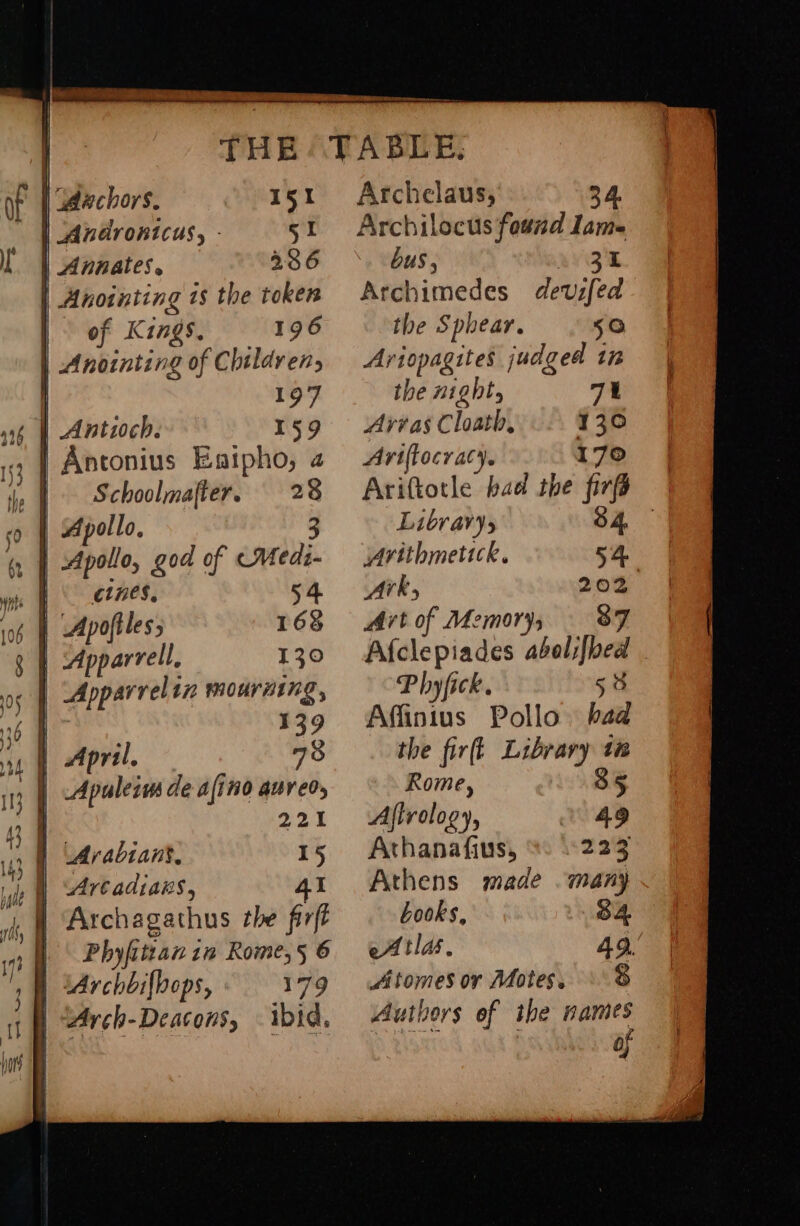 THE TABLE.
Anchors. 151
Andronicus, - 51
Annates. 286
Anointing is the token
of Kings. 196
Anointing of Children,
197
Antioch. 159
Antonius Enipho, a
Schoolmaſter. 28
Apollo. 3
Apollo, god of Medi-
cines. 54
Apoſtles, 168
Apparrell. 130
Apparrel in mourning,
139
April. 78
Apuleius de aſino aureo,
221
Arabians. 15
Arcadians, 41
Archagathus the firſt
Phyſitian in Rome, 56
Archbiſhops, 179
Arch-Deacons, ibid.
Archelaus, 34
Archilocus found Iam-
bus, 31
Archimedes deviſed
the Sphear. 50
Ariopagites judged in
the night, 71
Arras Cloath. 130
Ariſtocracy. 170
Ariſtotle had the firſt
Library, 84
Arithmetick. 54
Ark, 202
Art of Memory, 87
Aſclepiades aboliſhed
Phyſick. 58
Aſſinius Pollo had
the firſt Library in
Rome, 85
Aſtrology, 49
Athanaſius, 223
Athens made many
books, 84
Atlas. 49.
Atomes or Motes. 8
Authors of the names
of